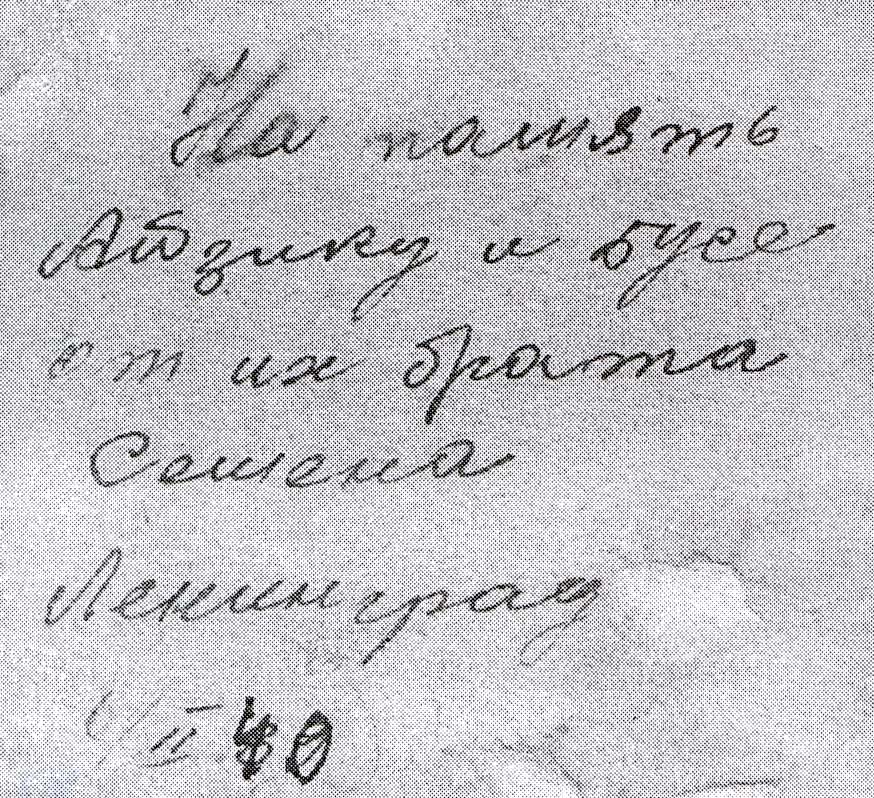 На память
Айзику и Бусе
от их брата
Семена
Ленинград
II 40